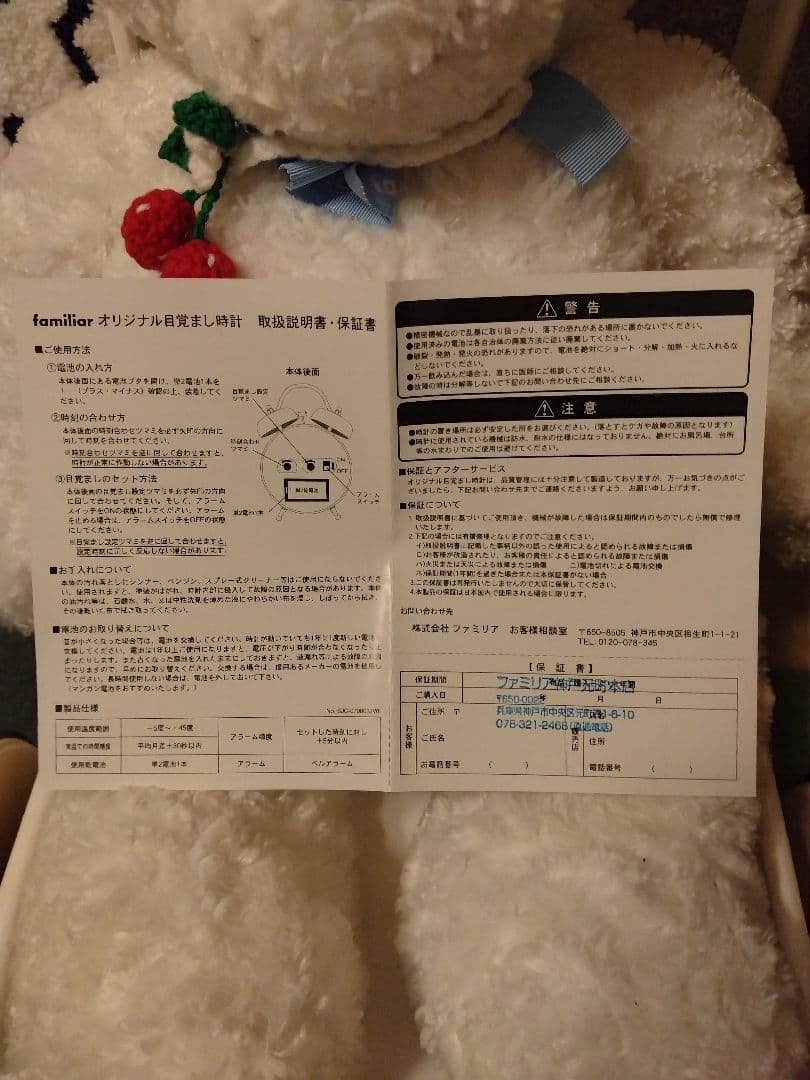 familiar オリジナル目覚まし時計　取扱説明書・保証書
■ご使用方法
①電池の入れ方
本体後面にある電池ブタを開け、単2電池1本を
(プラス・マイナス)確認の上、装着してく
ださい。
②時刻の合わせ方
本体後面の時刻合わせツマミを必ず矢印の方向に
回して時刻を合わせてください。
※時刻合わせツマミを逆に回して合わせますと、
時計が正常に作動しない場合があります。
③目覚ましのセット方法
本体後面の目覚まし設定ツマミを必ず矢印の方向
に回して合わせてください。そして、アラーム
スイッチをONの状態にしてください。アラーム
を止める場合は、アラームスイッチをOFFの状態
にしてください。
※目覚まし設定ツマミを逆に回して合わせますと、
設定時刻に正しく反応しない場合があります。
本体後面
目覚まし設定
ツマミ
時刻合わせ
ツマミ
ON
OFF
単2乾電池
単2電池1本
アラーム
スイッチ
■お手入れについて
本体の汚れ落としにシンナー、ベンジン、スプレー式クリーナー等はご使用にならないでくださ
い。
■電池のお取り替えについて
（マンガン電池をおすすめいたします。）
■製品仕様
使用温度範囲
−5度〜＋45度
アラーム精度
セットした時刻に対し
±5分以内
常温での時間精度
平均月差±30秒以内
使用乾電池
単2電池1本
アラーム
ベルアラーム
警告
●精密機械なので乱暴に取り扱ったり、落下の恐れがある場所に置かないでください。
●使用済みの電池は各自治体の廃棄方法に従い廃棄してください。
●破裂・発熱・発火の恐れがありますので、電池を絶対にショート・分解・加熱・火に入れるな
どしないでください。
●万一飲み込んだ場合は、直ちに医師にご相談してください。
●故障の時は分解等しないで下記のお問い合わせ先にご相談ください。
注意
●時計の置き場所は必ず安定した所をお選びください。（落とすとケガや故障の原因となります）
●時計に使用されている機械は防水、耐水の仕様にはなっておりません。絶対にお風呂場、台所
等の水まわりでのご使用は避けてください。
■保証とアフターサービス
オリジナル目覚まし時計は、品質管理には十分注意して製造しておりますが、万一お気づきの点がご
ざいましたら、下記お問い合わせ先までご連絡くださいますよう、お願い申し上げます。
■保証について
1.取扱説明書に基づいてご使用頂き、機械が故障した場合は保証期間内のものでしたら無償で修理
いたします。
2.下記の場合には有償修理となりますのでご注意ください。
イ)取扱説明書に記載した事柄以外の誤った使用によると認められる故障または損傷
ロ)お客様が改造されたり、お客様の責任によると認められる故障または損傷
ハ)火災または天災による故障または損傷　　ニ)電池切れによる電池交換
ホ)保証期間(1年間)を過ぎた場合または本保証書がない場合
3.この保証書は再発行いたしませんので大切に保管してください。
4.本製品の保証は日本国内で使用される場合に限ります。
お問い合わせ先
株式会社 ファミリア　お客様相談室　〒650-8505 神戸市中央区相生町1-1-21
TEL.0120-078-345
【保証書】
保証期間
年間
ファミリア神戸元町本店
ご購入日
年
月
日
〒650-0022
お客様
ご住所 〒
兵庫県神戸市中央区元町
1-6-10
078-321-2468(直通電話)
ご氏名
住所
お電話番号　（　　）
電話番号　（　　）